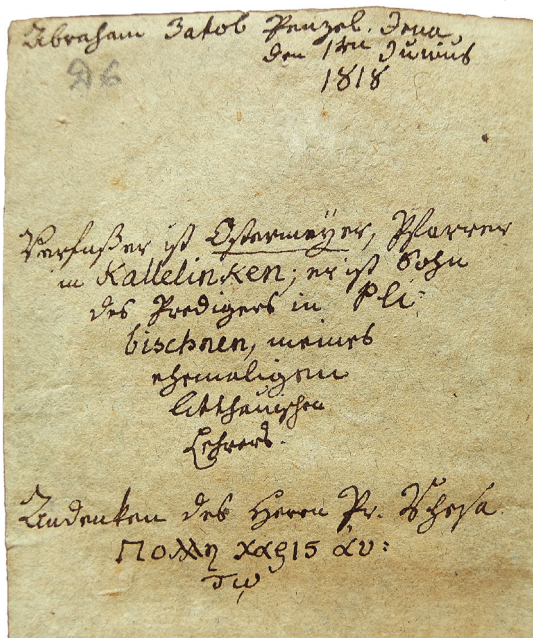 Abraham Jakob Penzel. Jena,
den 1ten Junius
1818
Verfaßer ist Ostermeÿer, Pfarrer
in Kallelinken; er ist Sohn
des Predigers in Pli-
bischnen, meines
ehemaligen
litthauischen
Lehrers.
Andenken des Herrn Pr. Rhesa.
Πολλη χαρις αυ:
τω